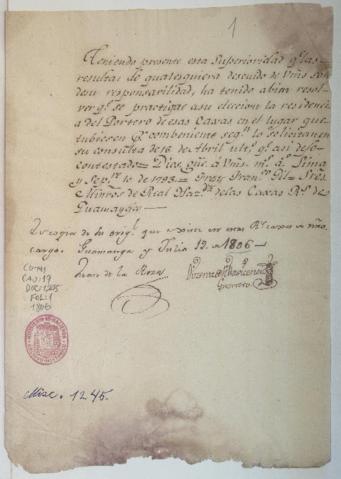 1
Teniendo presente esta Superioridad q.e las
resultas de qualesquiera descuido de Vms son
de su responsabilidad, ha tenido abien resol-
ver q.e se practique a su eleccion la residencia
del Portero de esas Caxas en el lugar que
tubiesen p.r combeniente seg.n lo
su consulta de 16 de Abril ult.o q.e asi dejo
contestado = Dios gue. á Vms. m.s a.s Lima
y Sep.re 10 de 1793 = Frey Fran.co Gil = S.res
Minros de Real Haz.da de las Caxas R.s de
Guamanga
Es copia de su orig.l que existe en estas R.s caxas de nro
cargo. Guamanga y Julio 12 de 1806
Juan de la Roza
COTN1
CAJ:19
DOC:1245
FOL:1
1806
Misc. 1245.